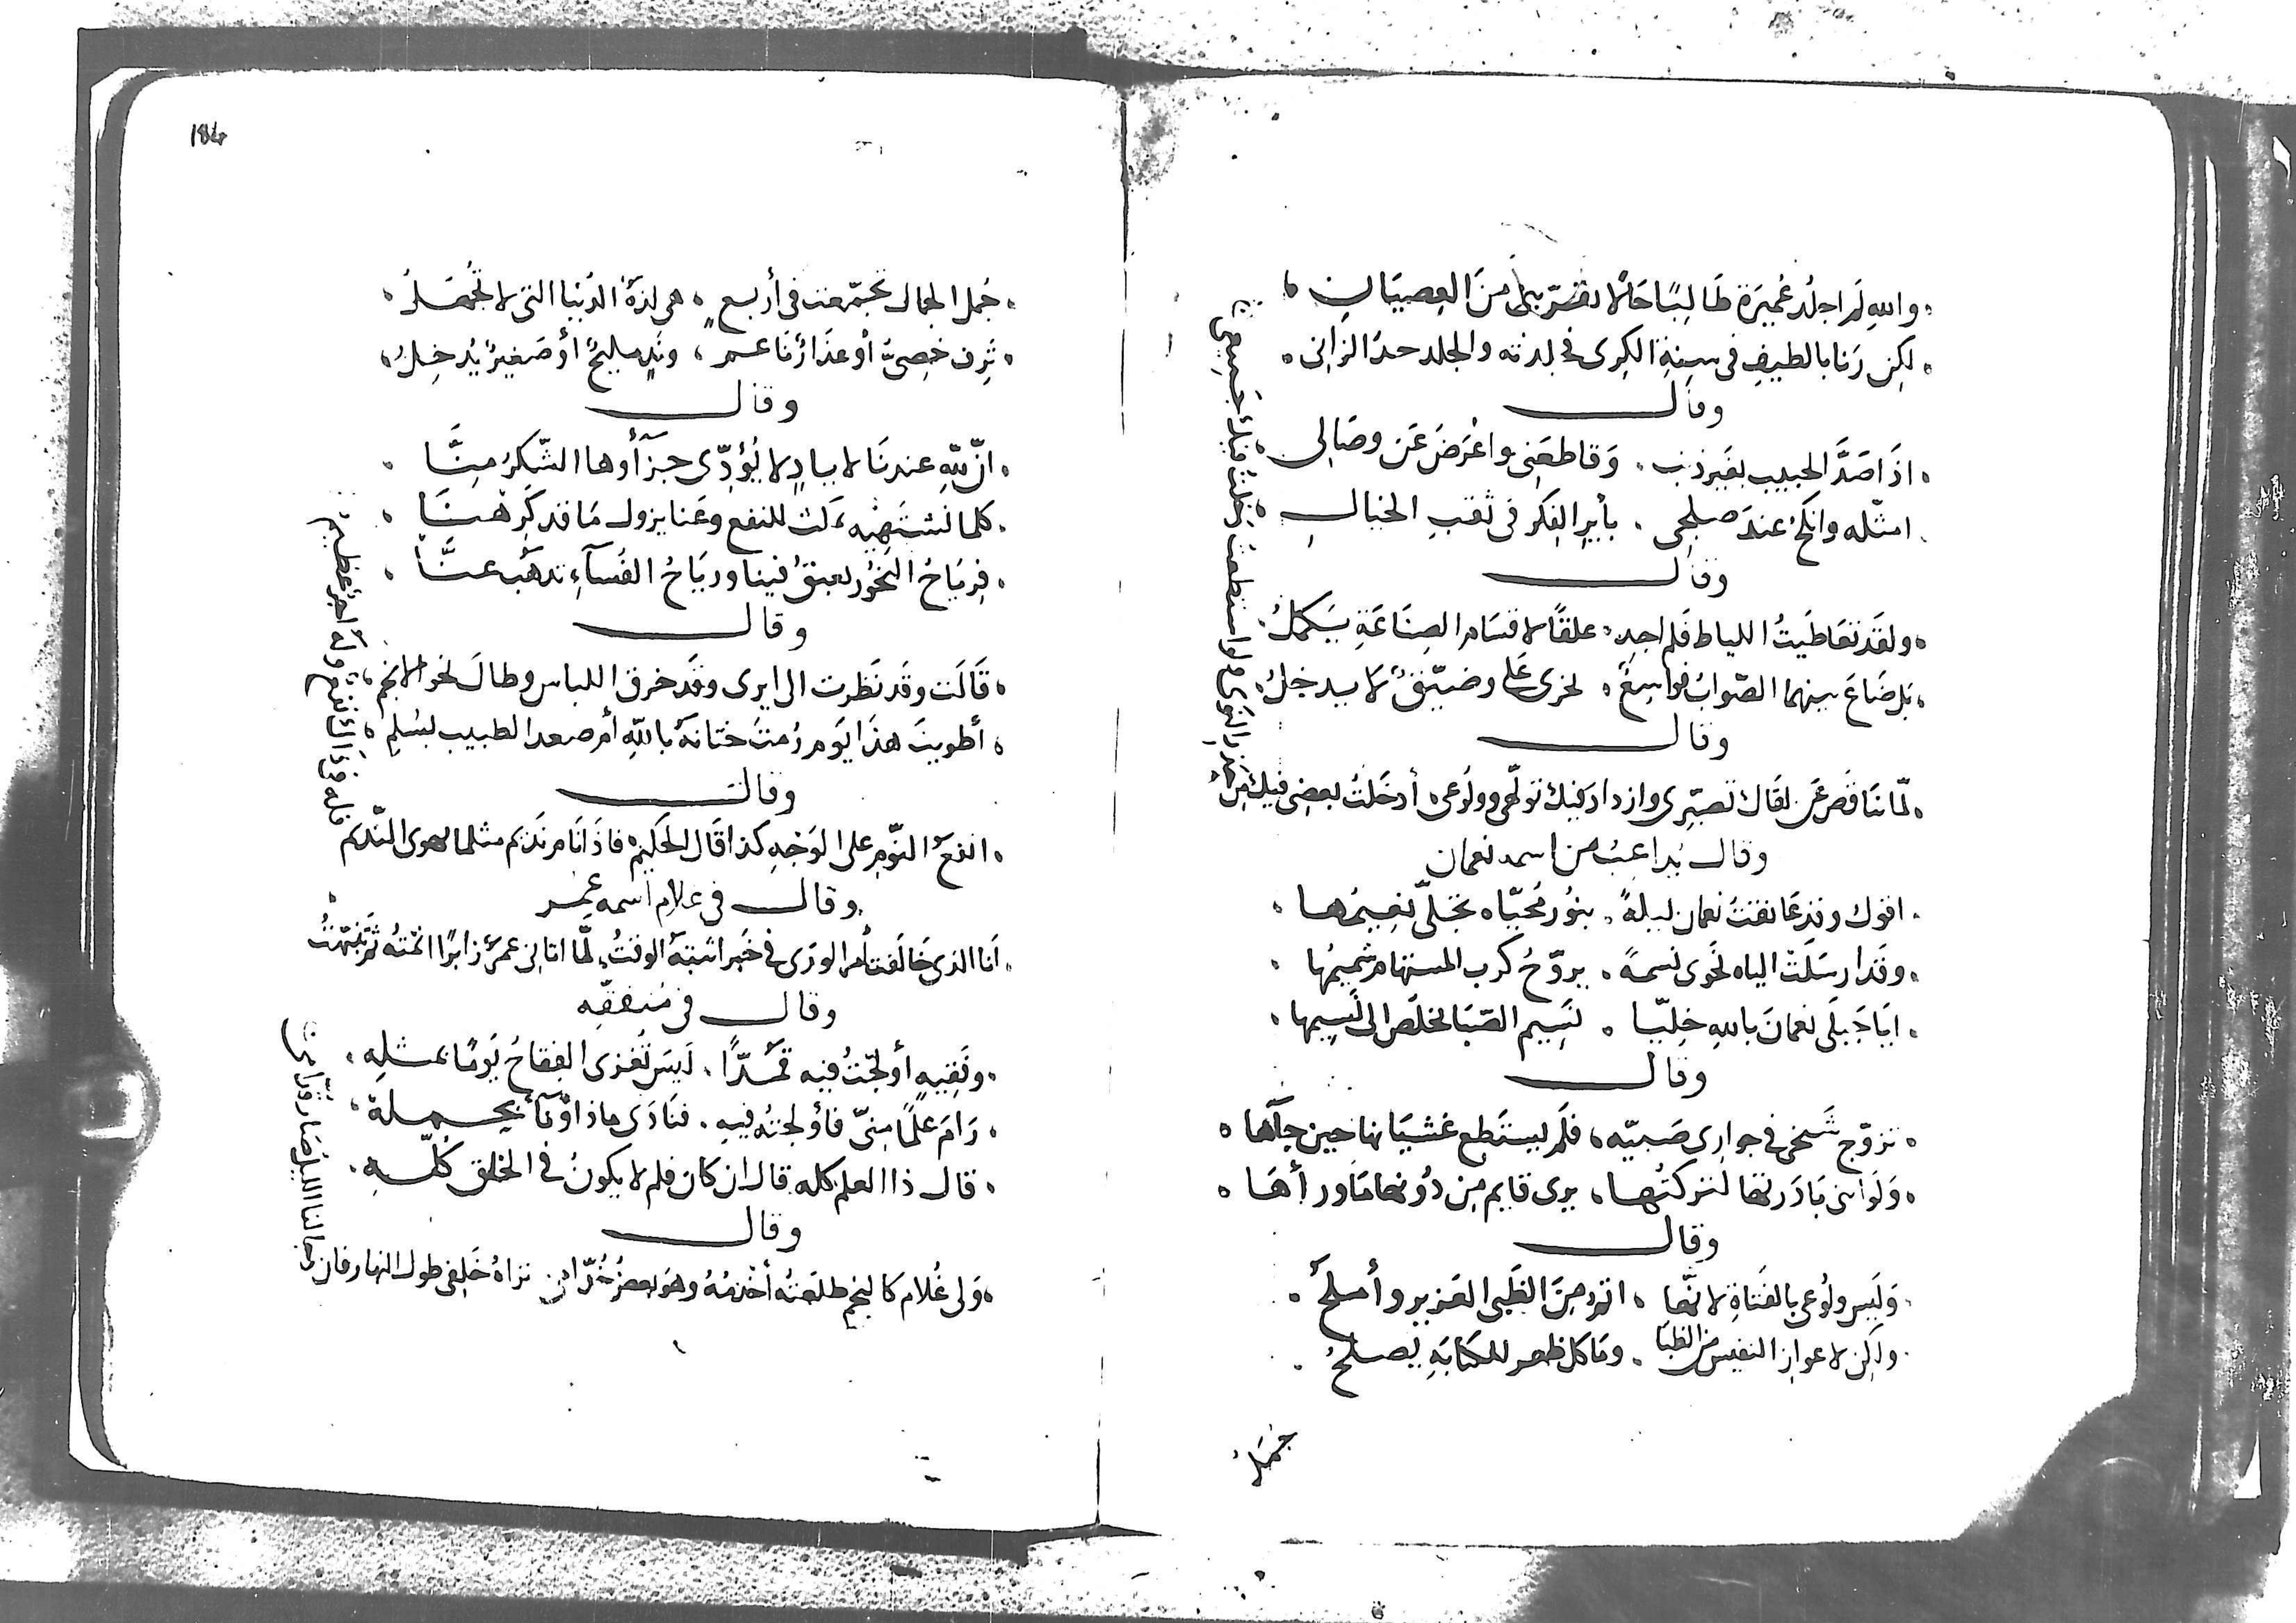 والله لم اجلد عُميرَة طَالِبًا حَالًا تقرّبنى منَ العِصيَانِ
لكِن زَنا بالطيفِ فى سِنةِ الكِرى فجلدته والجلد حدّ الزانى
وقال
اذَا صَدَّ الحبيب بغَير ذنب وَقاطعَنِى واعْرَضَ عَن وصَالِى
امثّله وانكحُ عندَ صلحِى بأيرِ الفِكر فى ثقبِ الخيالِ
وقال
ولقَد تعَاطَيتُ اللياط فَلم اجد علقًا لاقسَام الصِنَاعَةِ يَكملُ
بَل ضَاعَ بينهما الصّوابُ فوَاسِعٌ يخرى عَلى وضيّقٌ لَا يدخلُ
وقال
لمّا تنَاقصَ عَن لقَاك تصَبّرِى وازداد فيك تولّهى وولُوعى أدخَلتُ بعضِى فيك مِن
وقال يُداعبُ من اسمه نعمان
اقول وقد عَانقتُ نعمان ليلةً بنوُر مُحيّاه تجَلّى نعِيمُها
وقَد ارسَلَتْ الياه نَحوى نسمةً يروّحُ كرب المستهام شميمُها
ايَا جَبَلَى نعمانَ باللهِ خِليّا نَسِيم الصّبَا يخلصْ الى نَسِيمها
وقال
تزوّج شَخى فى جوارى صَبيّه فَلم يستَطع غشيَانها حين جآها
وَلَو اننى بَادَرتها لتركتُها يرى قايم مِن دُونها مَا ورأهَا
وقال
وَلَيسَ ولُوعى بالفتَاةِ لانّها الذ مِنَ الظَبى العَزيز وأملحُ
ولكِن لاعواز النفيس من الظبا ومَا كل ظهر للكتابَةِ يصلحُ
جُمَلُ
184
جُمل الجمال تجمّعت فى أربع هى لذةُ الدُنيا التى لا تُجهَلُ
تَرِف خصِىٌّ أو عذَارٌ نَاعم ونَد مليحٌ أو صَغيرٌ يُدخِلُ
وقال
انّ للّهِ عندنَا لايادٍ لا يُؤدّى جزَآؤها الشّكرُ مِنَّا
كلما نَشتَهِيهِ يَاتِ للنفع وعَنا يزول مَا قد كَرِهْنَا
فرِيَاحُ البَخُور تعبقُ فينا وريَاحُ الفسَآءِ تذهَب عنَّا
وقال
قَالَت وقَد نَظرت الى ايرى وقَد خرق اللباس وطالَ نحو الانجم
أطويتَ هذَا يَوم رُمتَ ختانهُ باللهِ أم صعد الطبيب بسُلم
وقال
انفعُ النّومِ على الوَجهِ كذا قَال الحَكيم فاذَا نَام نَديم مثلما يهوى النّديم
وقال فى غلام اسمه عمر
انَا الذى خَالَفتُ أمر الورَى فى خَبرٍ اثبتهُ الوقتُ لَمّا اتانِى عمرٌ زايرًا انمتُه ثم تنبّهتُ
وقال فى مُتفقّه
وفَقيهٍ أولجْتُ فيه قمُدّاً لَيسَ تغزى الفِقاحُ يَومًا بمثلِه
رَامَ عِلمًا مِنّى فأولجتُه فيهِ فنَادَى ماذا
قال ذا العلم كله قال ان كان فلم لا يكونُ فى الخلق كُلّهِ
وقال
وَلى غُلام كالنجم طلعَتُه أخْدمُهُ وهوَ بعضُ خُدّامِى تراهُ خَلفِى طول النهار فان